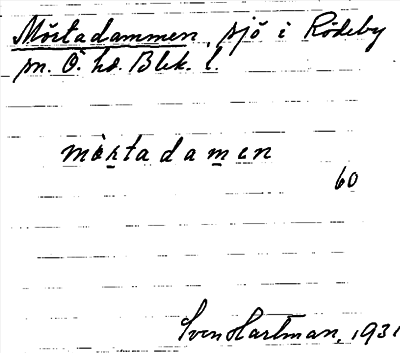 Mörtadammen, sjö i Rödeby
sn. Ö. hd. Blek. l.
mörtadamen
60
Sven Hartman, 1931